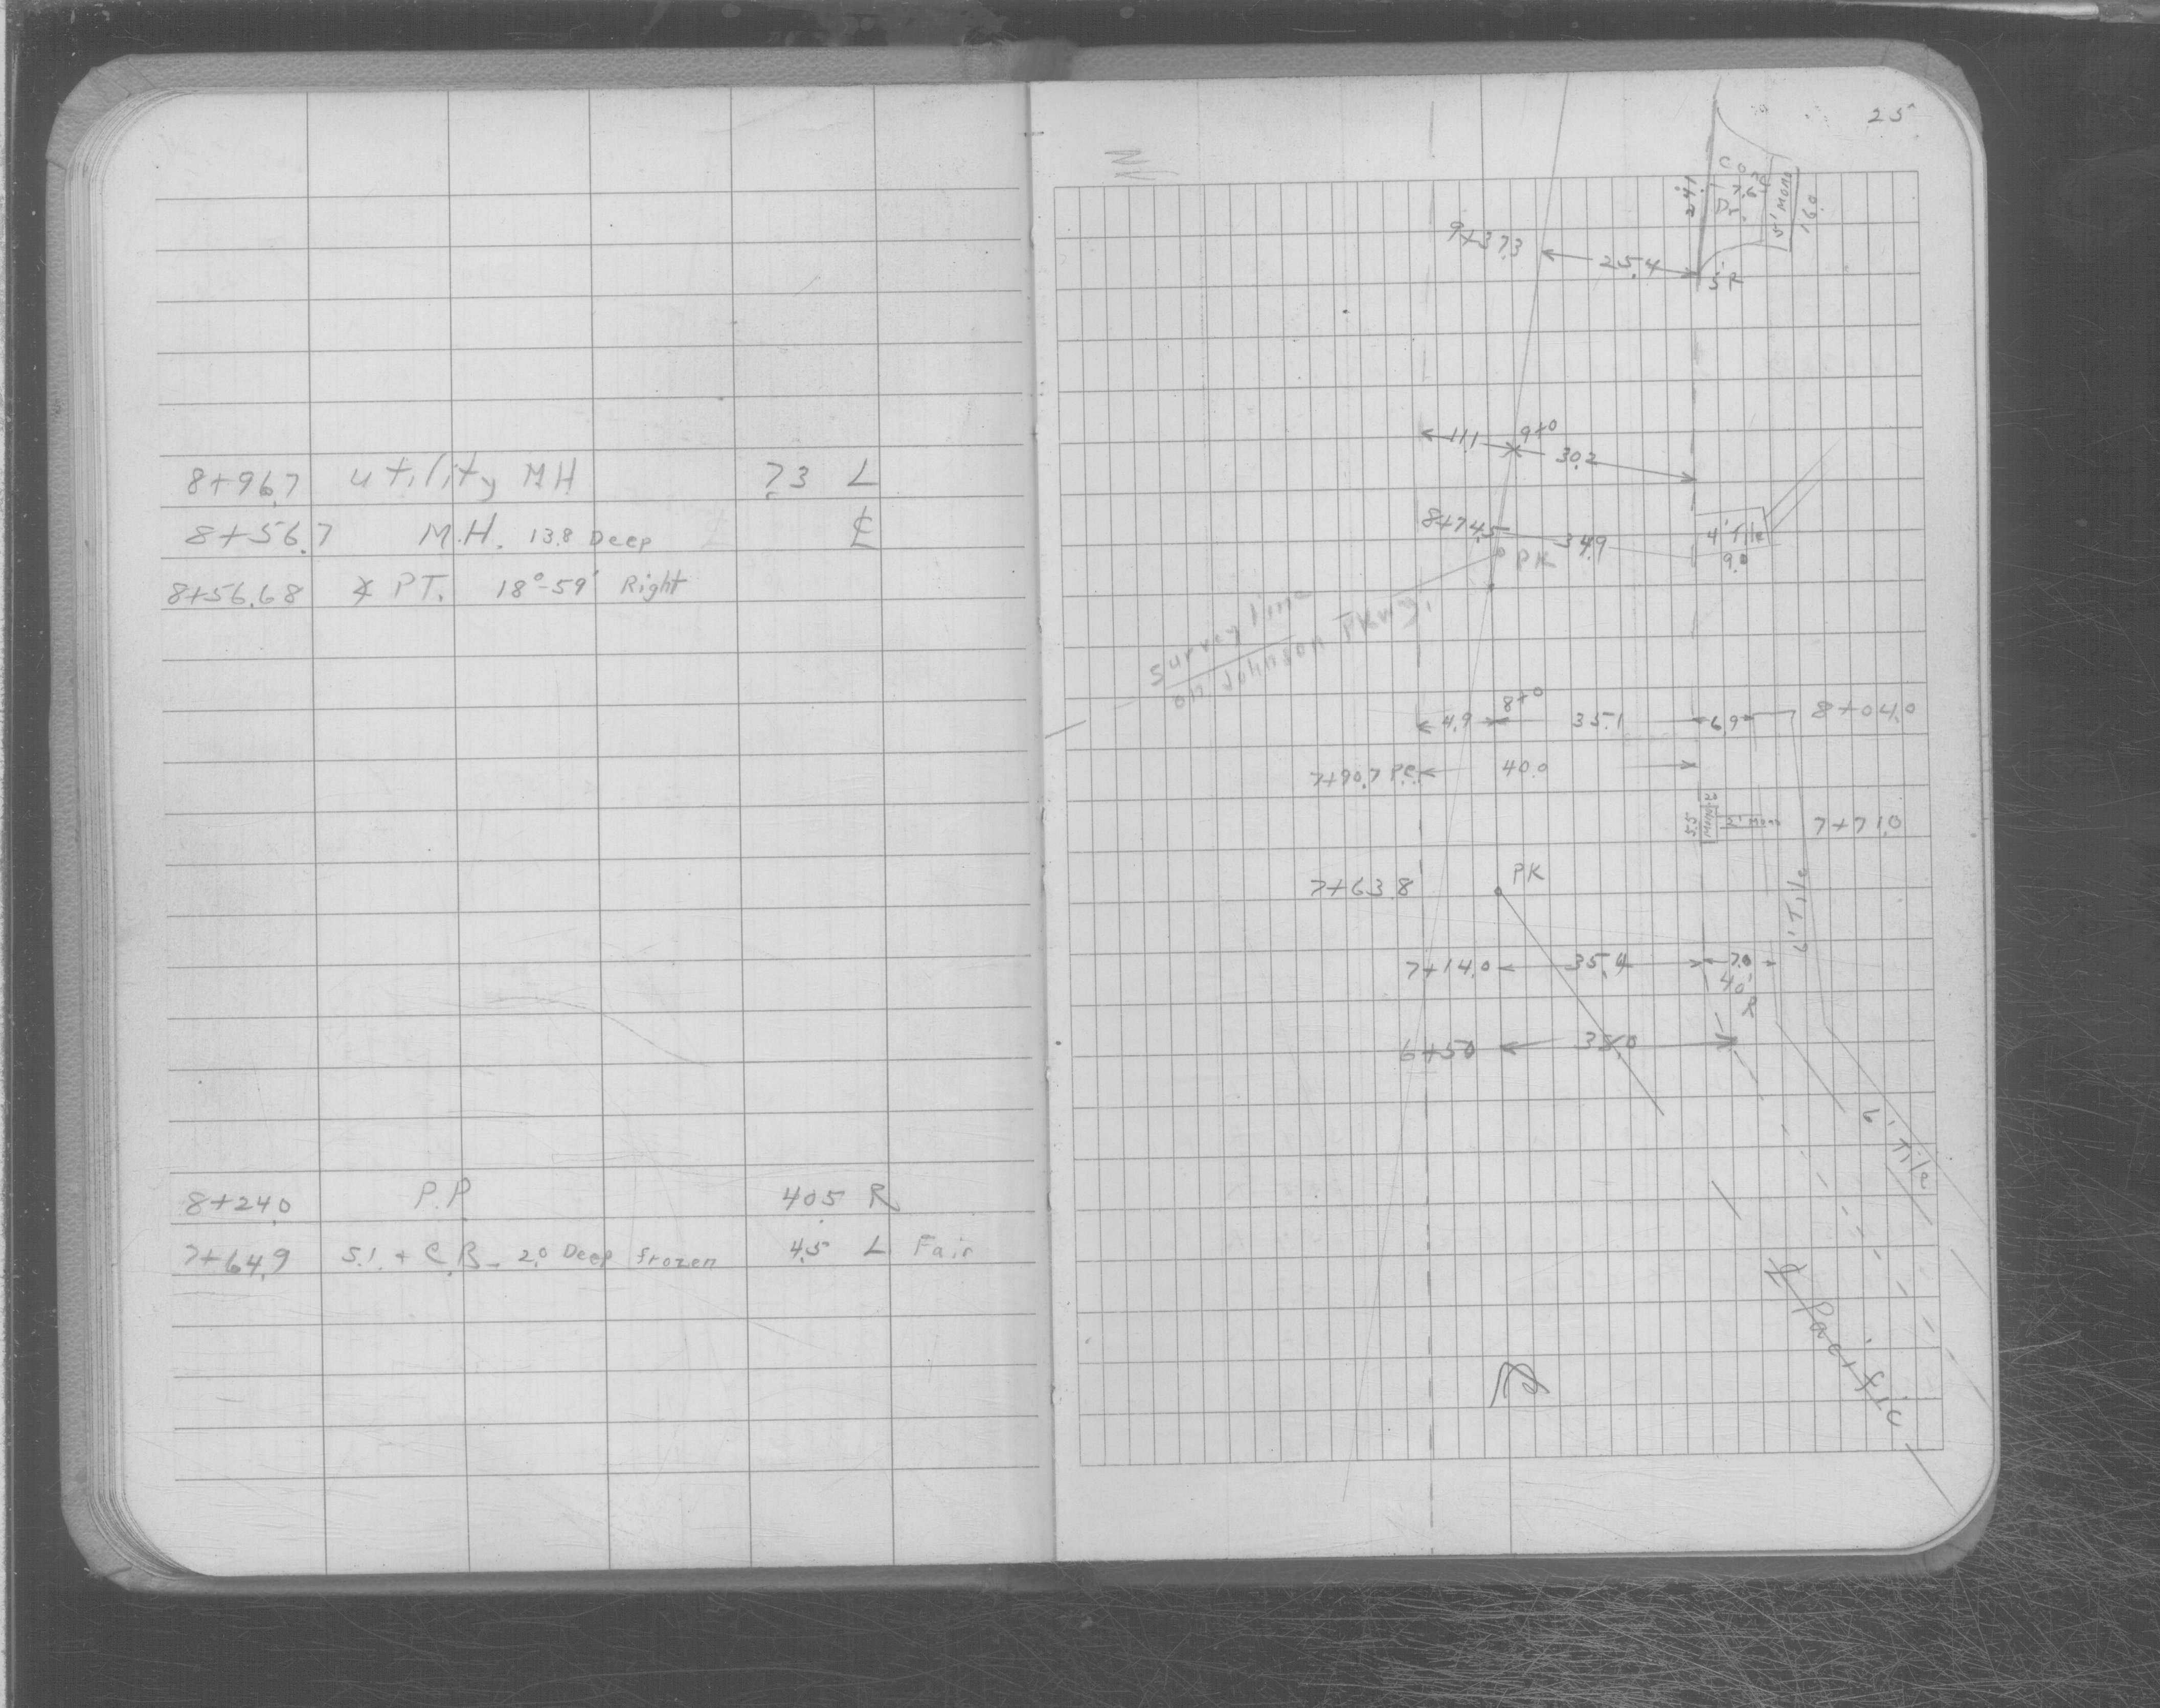 8+96.7 utility MH 7.3 L
8+56.7 M.H. 13.8 Deep ℄
8+56.68 ∡ PT. 18°-59' Right
8+24.0 P.P 40.5 R
7+64.9 S.I. + C.B. - 2.0 Deep frozen 4.5 L Fair
25
24.1
Conc
17.6
Dr.
5' Mono
16.0
9+37.3 25.4
5'R
11.1 9+0 30.2
8+74.5 34.9 4' Tile
PK 9.0
Survey line
on
4.9 8+0 35.1 6.9 8+04.0
7+90.7 P.C. 40.0
5.5 Mono 2.0 2' Mono 7+71.0
7+63.8 PK
6' Tile
7+14.0 35.4 7.0
40'
R
6+50 38.0
6' Tile
Pacific